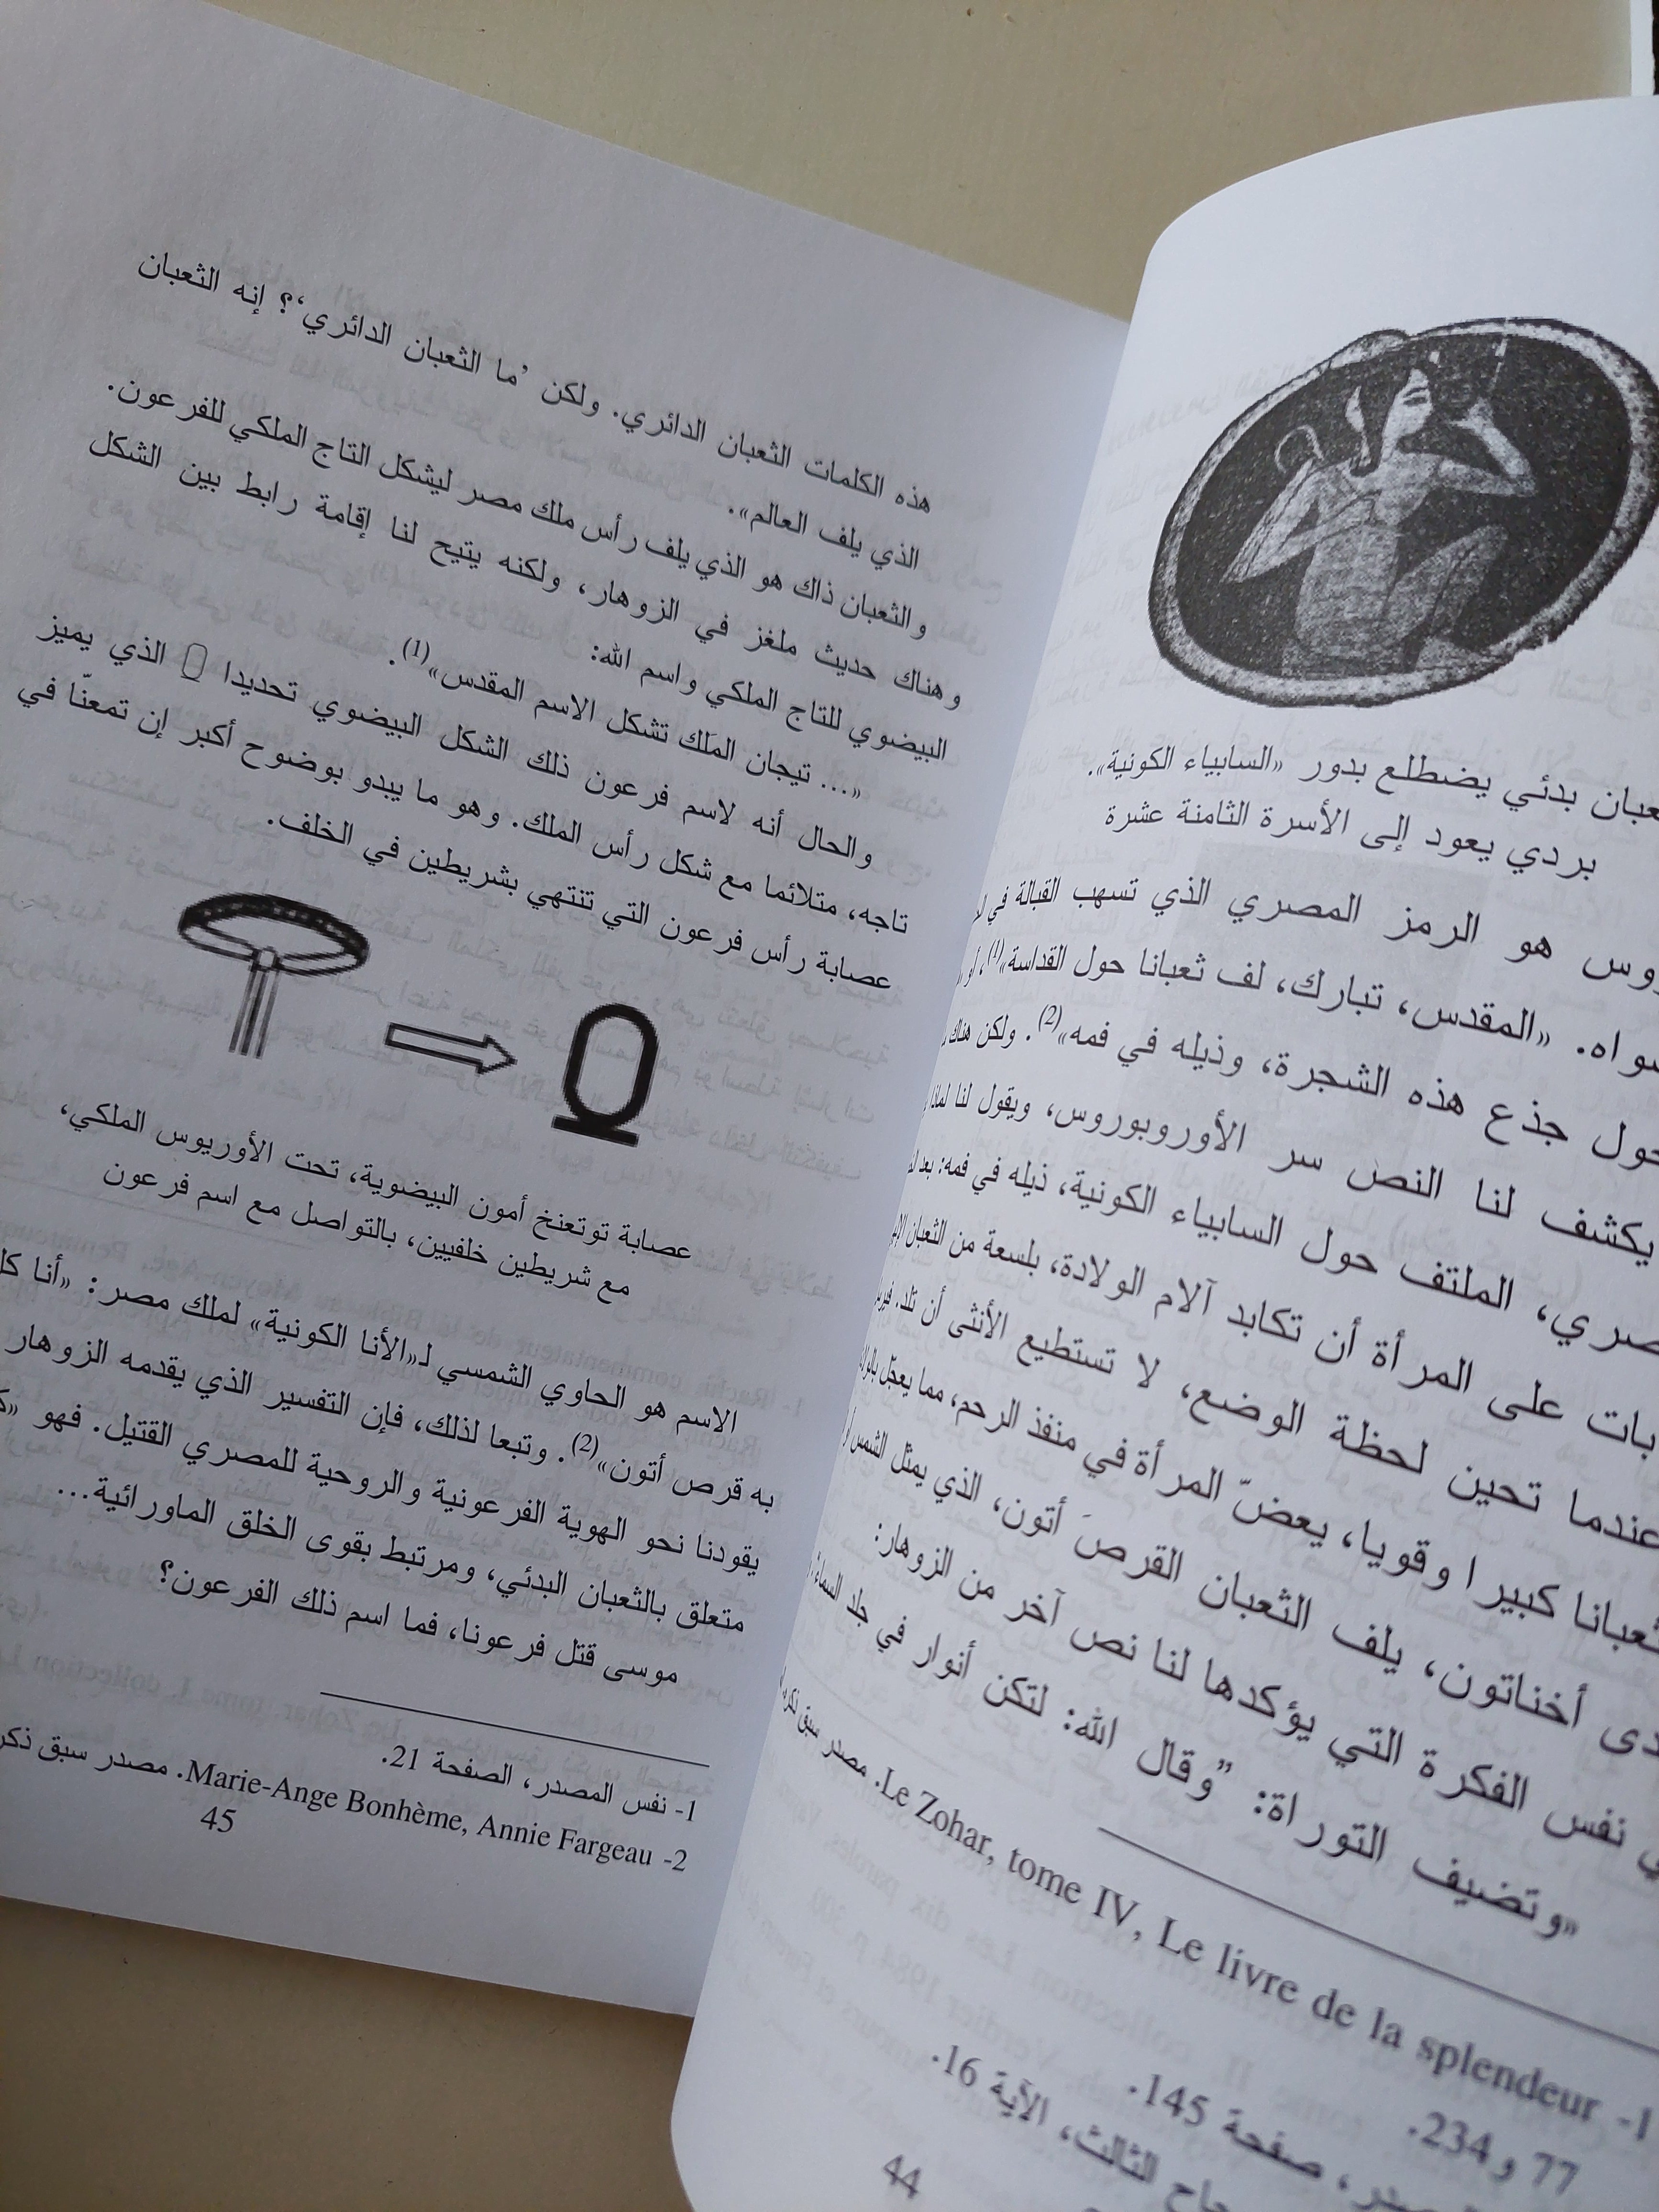 بدئي يضطلع بدور «السابياء الكونية».
بردي يعود إلى الأسرة الثامنة عشرة
هو الرمز المصري الذي تسهب القبالة في
«المقدس، تبارك، لف ثعبانا حول القداسة»(1)،
جذع هذه الشجرة، وذيله في فمه»(2). ولكن هناك
يكشف لنا النص سر الأوروبوروس، ويقول لنا
الملتف حول السابياء الكونية، ذيله في فمه: بعد
بات على المرأة أن تكابد آلام الولادة، بلسعة من الثعبان
عندما تحين لحظة الوضع، لا تستطيع الأنثى أن تلد.
ثعبانا كبيرا وقويا، يعضّ المرأة في منفذ الرحم، مما يعجّل
أخناتون، يلف الثعبان القرصَ أتون، الذي يمثل الشمس
نفس الفكرة التي يؤكدها لنا نص آخر من الزوهار:
«وتضيف التوراة: ”وقال الله: لتكن أنوار في جلد السماء
1- Le Zohar, tome IV, Le livre de la splendeur. مصدر سبق
77 و234.
صفحة 145.
الثالث، الآية 16.
44
هذه الكلمات الثعبان الدائري. ولكن ’ما الثعبان الدائري‘؟ إنه الثعبان
الذي يلف العالم».
والثعبان ذاك هو الذي يلف رأس ملك مصر ليشكل التاج الملكي للفرعون.
وهناك حديث ملغز في الزوهار، ولكنه يتيح لنا إقامة رابط بين الشكل
البيضوي للتاج الملكي واسم الله:
«... تيجان المَلك تشكل الاسم المقدس»(1).
والحال أنه لاسم فرعون ذلك الشكل البيضوي تحديدا الذي يميز
تاجه، متلائما مع شكل رأس الملك. وهو ما يبدو بوضوح أكبر إن تمعنّا في
عصابة رأس فرعون التي تنتهي بشريطين في الخلف.
عصابة توتعنخ أمون البيضوية، تحت الأوريوس الملكي،
مع شريطين خلفيين، بالتواصل مع اسم فرعون
الاسم هو الحاوي الشمسي لـ«الأنا الكونية» لملك مصر: «أنا
به قرص أتون»(2). وتبعا لذلك، فإن التفسير الذي يقدمه الزوهار
يقودنا نحو الهوية الفرعونية والروحية للمصري القتيل. فهو
متعلق بالثعبان البدئي، ومرتبط بقوى الخلق الماورائية...
موسى قتل فرعونا، فما اسم ذلك الفرعون؟
1- نفس المصدر، الصفحة 21.
2- Marie-Ange Bonhème, Annie Fargeau. مصدر سبق
45